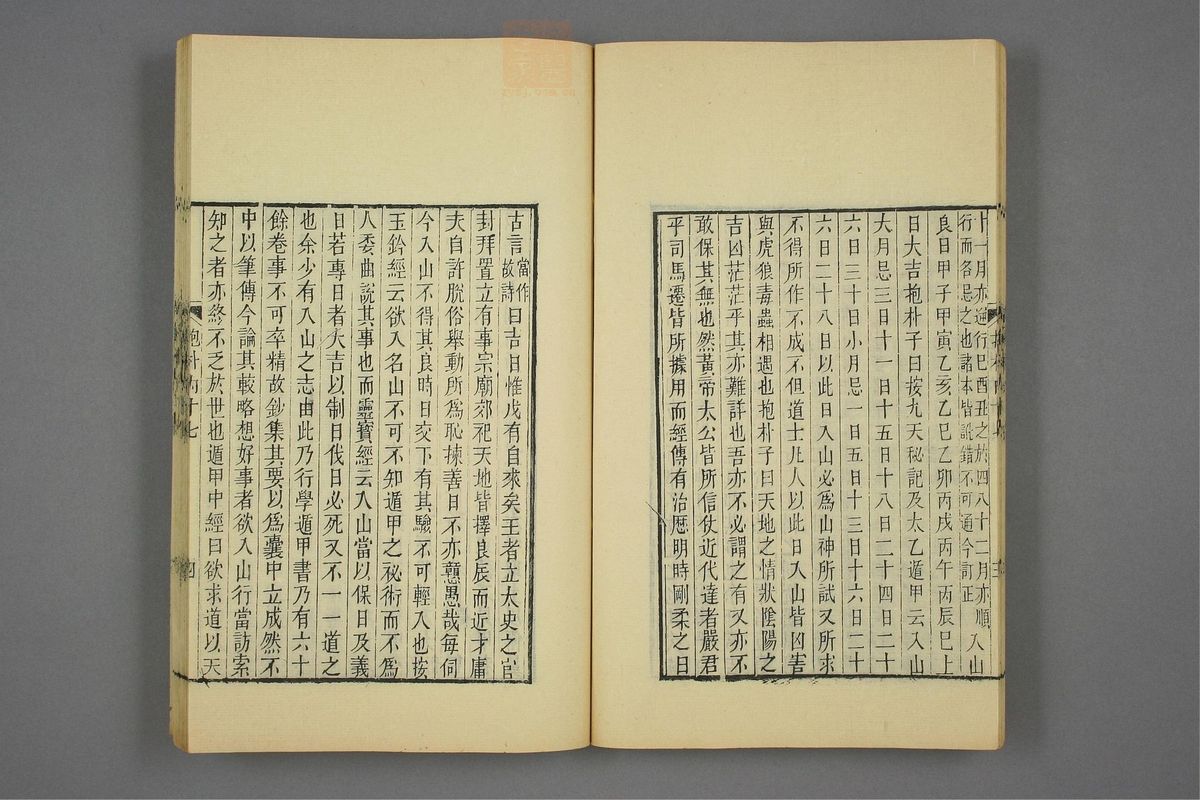 十一月亦逆行巳酉丑之於四八十二月亦順
行而各忌之也諸本皆訛錯不可通今訂正入山
良日甲子甲寅乙亥乙巳乙卯丙戌丙午丙辰巳上
日大吉抱朴子曰按九天秘記及太乙遁甲云入山
大月忌三日十一日十五日十八日二十四日二十
六日三十日小月忌一日五日十三日十六日二十
六日二十八日以此日入山必爲山神所試又所求
不得所作不成不但道士凡人以此日入山皆凶害
與虎狼毒蟲相遇也抱朴子曰天地之情狀陰陽之
吉凶茫茫乎其亦難詳也吾亦不必謂之有又亦不
敢保其無也然黃帝太公皆所信仗近代達者嚴君
平司馬遷皆所據用而經傳有治歷明時剛柔之日
古言當作故詩曰吉日惟戊有自來矣王者立太史之官
封拜置立有事宗廟郊祀天地皆擇良辰而近才庸
夫自許脫俗舉動所爲恥揀善日不亦戇愚哉每伺
今入山不得其良時日交下有其驗不可輕入也按
玉鈐經云欲入名山不可不知遁甲之秘術而不爲
人委曲說其事也而靈寶經云入山當以保日及義
日若專日者大吉以制日伐日必死又不一一道之
也余少有入山之志由此乃行學遁甲書乃有六十
餘卷事不可卒精故鈔集其要以爲囊中立成然不
中以筆傳今論其較略想好事者欲入山行當訪索
知之者亦終不乏於世也遁甲中經曰欲求道以天
抱朴內十七
四